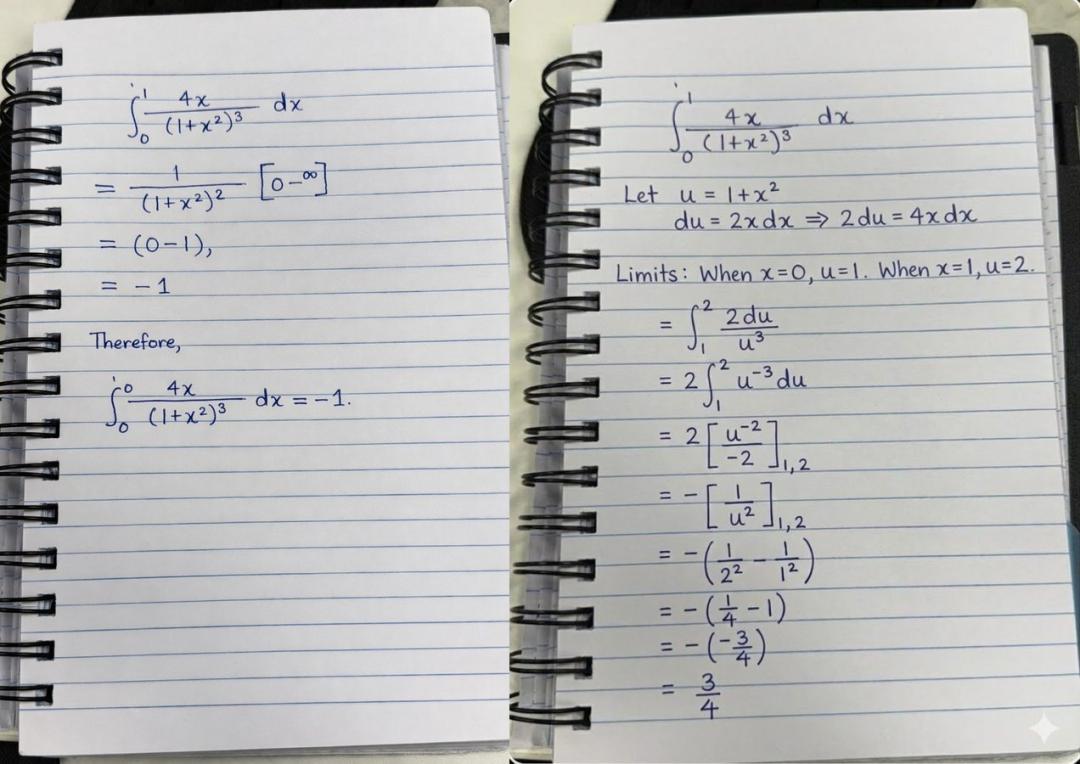 ∫₀¹ 4x/(1+x²)³ dx
= 1/(1+x²)² [0-∞]
= (0-1),
= -1
Therefore,
∫₀⁰ 4x/(1+x²)³ dx = -1.
∫₀¹ 4x/(1+x²)³ dx
Let u = 1+x²
du = 2x dx ⇒ 2 du = 4x dx
Limits: When x=0, u=1. When x=1, u=2.
= ∫₁² 2 du/u³
= 2 ∫₁² u⁻³ du
= 2 [u⁻²/-2]₁,₂
= - [1/u²]₁,₂
= - (1/2² - 1/1²)
= - (1/4 - 1)
= - (-3/4)
= 3/4